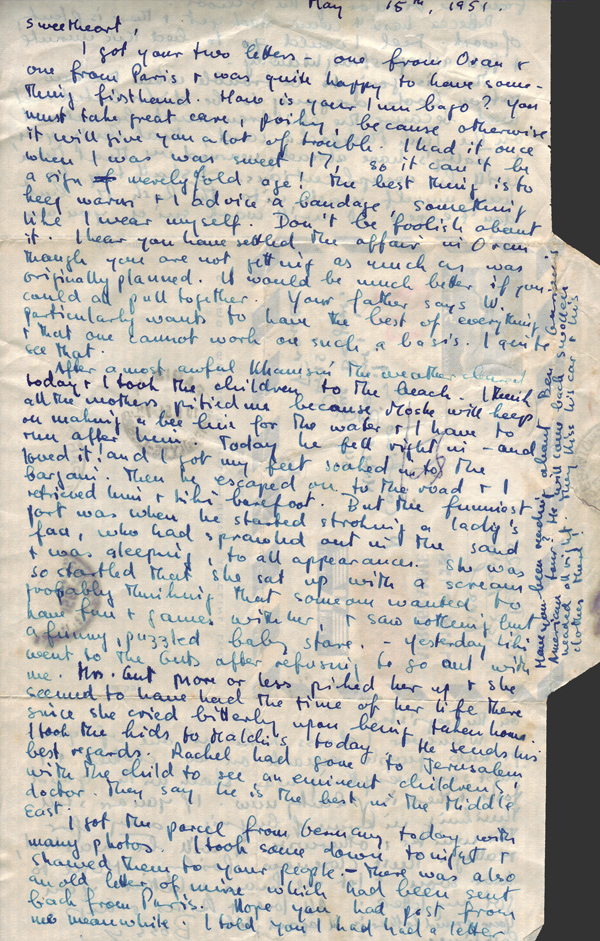 May 15th, 1951.
Sweetheart,
I got your two letters - one from Oran &
one from Paris & was quite happy to have some-
thing firsthand. How is your lumbago? You
must take great care, poiky, because otherwise
it will give you a lot of trouble. I had it once
when I was was sweet 17, so it can't be
a sign of merely old age! The best thing is to
keep warm & I advice a bandage, something
like I wear myself. Don't be foolish about
it. I hear you have settled the affair in Oran
though you are not getting as much as was
originally planned. It would be much better if you
could all pull together. Your father says W.
particularly wants to have the best of everything
& that one cannot work on such a basis. I quite
see that.
After a most awful Khamsin the weather cleared
today & I took the children to the beach. I think
all the mothers pitied me because Moshe will keep
on making a bee line for the water & I have to
run after him. Today he fell right in - and
loved it! and I got my feet soaked into the
bargain. Then he escaped on to the road & I
retrieved him & Kiki barefoot. But the funniest
part was when he started stroking a lady's
face, who had sprawled out in the sand
& was sleeping, to all appearances. She was
so startled that she sat up with a scream
probably thinking that someone wanted to
have fun & games with her, & saw nothing but
a funny, puzzled baby stare. - Yesterday Kiki
went to the Guts after refusing to go out with
me. Mrs. Gut more or less picked her up & she
seemed to have had the time of her life there
since she cried bitterly upon being taken home.
I took the kids to Malchi's today. He sends his
best regards. Rachel had gone to Jerusalem
with the child to see an eminent children's
doctor. They say he is the best in the Middle
East!
I got the parcel from Germany today with
many photos. I took some down tonight &
showed them to your people. - There was also
an old letter of mine which had been sent
back from Paris. Hope you had post from
me meanwhile. I told you I had had a letter
Have you been reading about Ben Gurion's
American tour? He will come back swollen
headed allright. They kiss his car & his
clothes there!